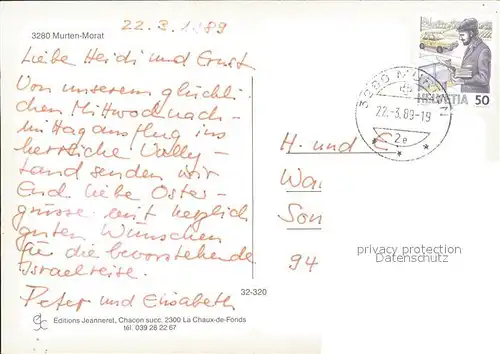 22.3.1989
3280 Murten-Morat
Liebe Heidi und Ernst
Von unserem glückli-
chen Mittwoch nach-
mittagausflug ins
herrliche Vully-
land senden wir
Euch liebe Oster-
grüsse mit herzlich
guten Wünschen
für die bevorstehende
Israelreise.
Peter und Elisabeth
32-320
Editions Jeanneret, Chacon succ. 2300 La Chaux-de-Fonds
tél. 039 28 22 67
HELVETIA 50
3280 MURTEN
22.-3.89-19
2e
H. und E
Wa
Son
94
privacy protection
Veröffentlichungsschutz